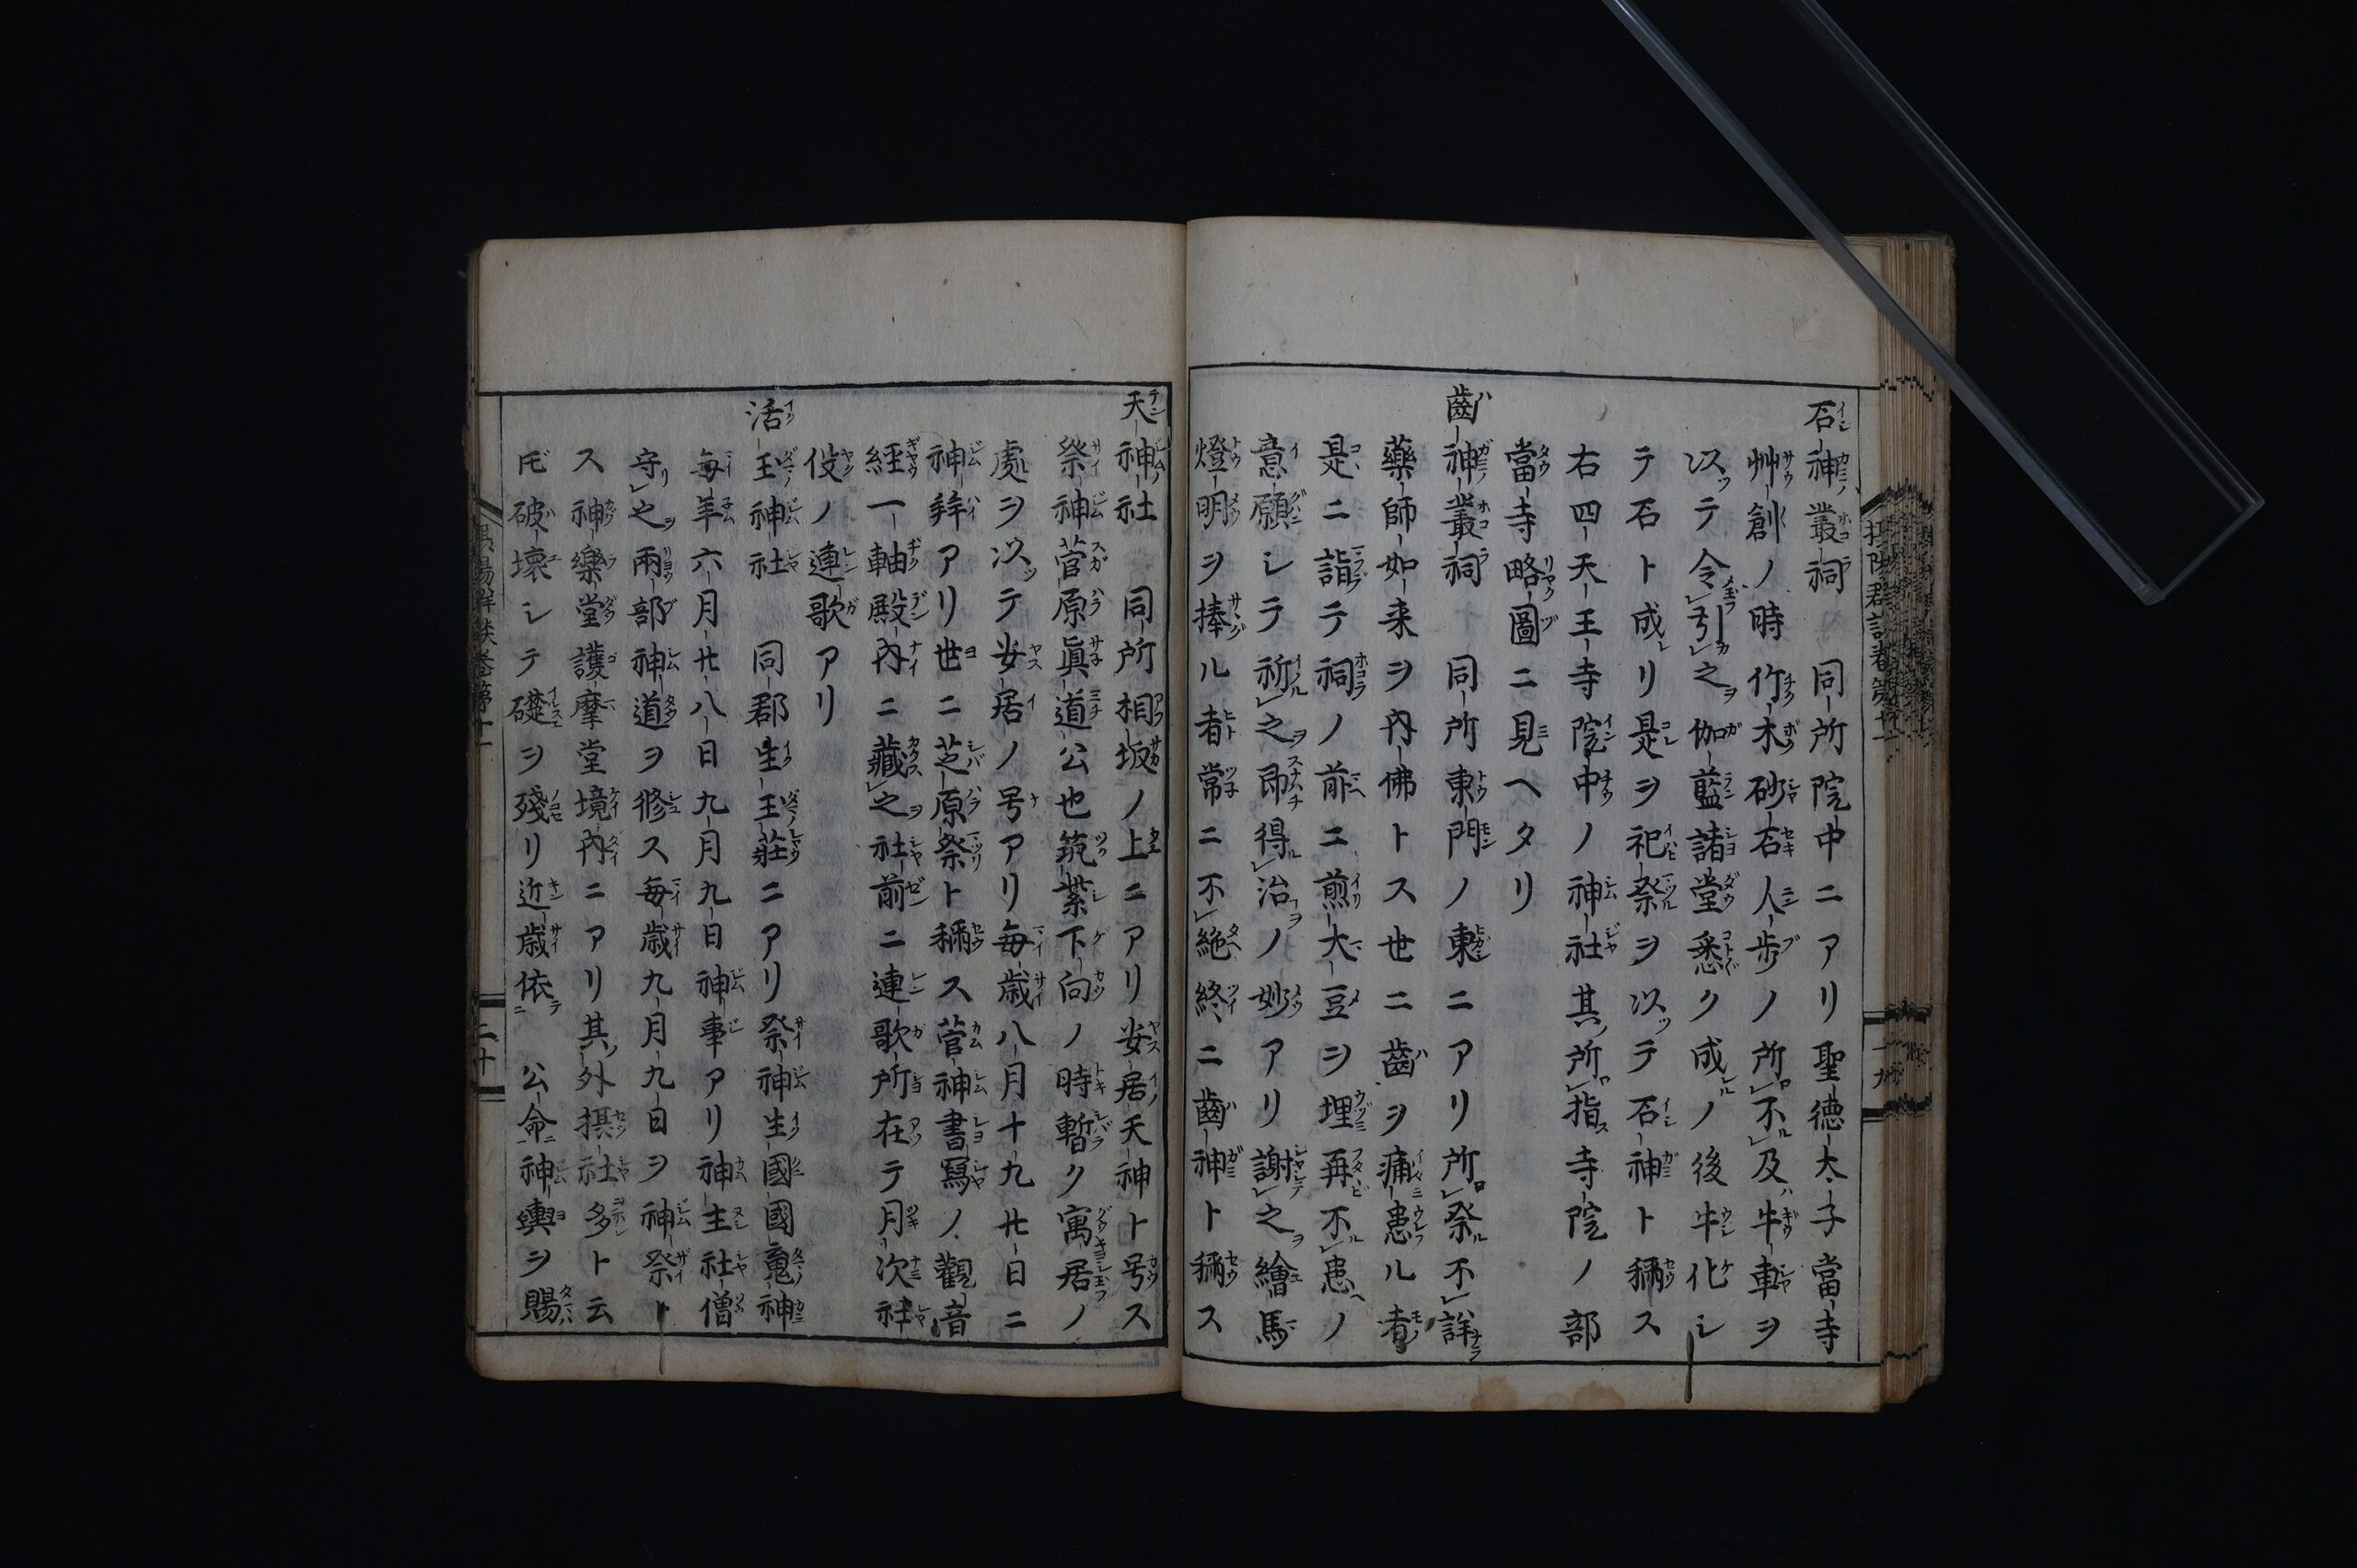 石神叢祠 同所院中ニアリ聖徳太子當寺
艸創ノ時竹木砂石人歩ノ所不及牛車ヲ
以テ令引之伽藍諸堂悉ク成ノ後牛化シ
テ石ト成リ是ヲ祀祭ヲ以テ石神ト稱ス
右四天王寺院中ノ神社其所指寺院ノ部
當寺略圖ニ見ヘタリ
齒神叢祠 同所東門ノ東ニアリ所祭不詳
藥師如来ヲ内佛トス世ニ齒ヲ痛患ル者
是ニ詣テ祠ノ前ニ煎大豆ヲ埋再不患ノ
意願シテ祈之即得治ノ妙アリ謝之繪馬
燈明ヲ捧ル者常ニ不絶終ニ齒神ト稱ス
天神社 同所相坂ノ上ニアリ安居天神ト号ス
祭神菅原眞道公也筑紫下向ノ時暫ク寓居ノ
處ヲ以テ安居ノ号アリ毎歳八月十九廿日ニ
神拜アリ世ニ芝原祭ト稱ス菅神書寫ノ觀音
経一軸殿内ニ藏之社前ニ連歌所在テ月次社
役ノ連歌アリ
活玉神社 同郡生玉莊ニアリ祭神生國國魂神
毎年六月廿八日九月九日神事アリ神主社僧
守之兩部神道ヲ修ス毎歳九月九日ヲ神祭ト
ス神樂堂護摩堂境内ニアリ其外摂社多ト云
𪜈破壊シテ礎ヲ殘リ近歳依 公命神輿ヲ賜
二十